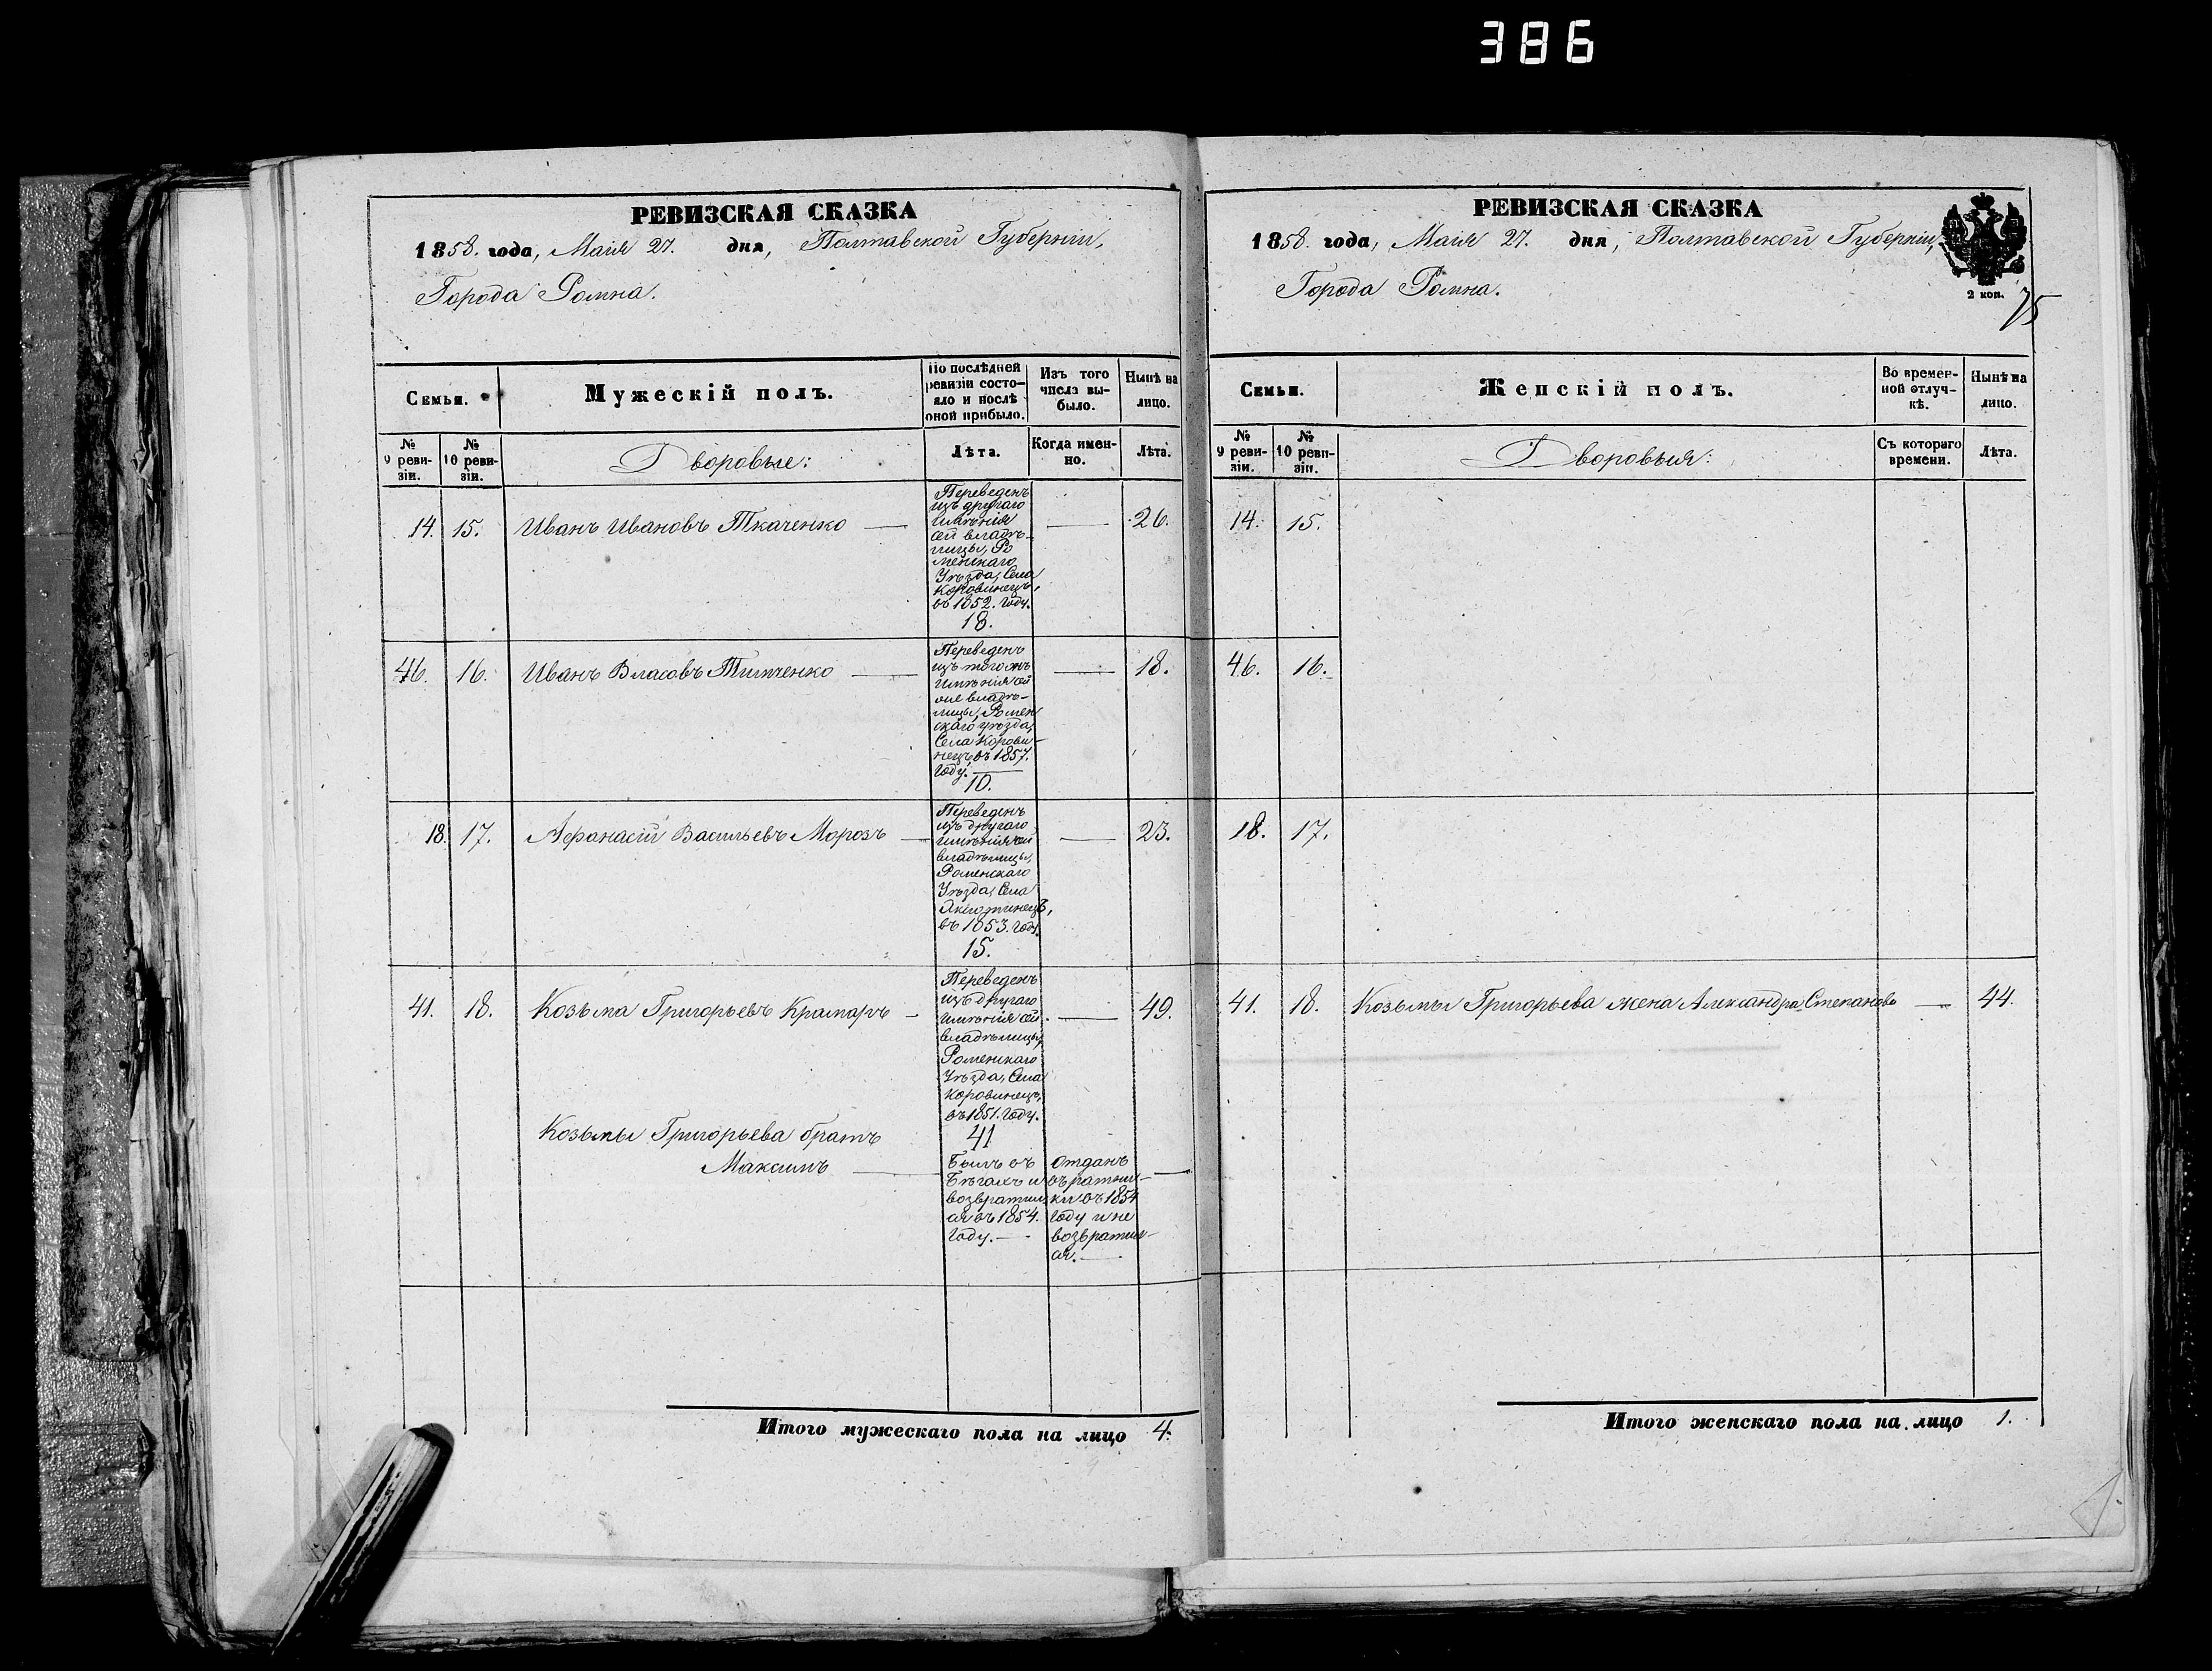 386
РЕВИЗСКАЯ СКАЗКА
1858. года, Маія 27. дня, Полтавской Губерніи,
Города Ромна.
Семьи.
Мужескій полъ.
По послѣдней ревизіи состо-
яло и послѣ
оной прибыло.
Изъ того
числа вы-
было.
Нынѣ на
лицо.
№
9 реви-
зіи.
№
10 реви-
зіи.
Дворовые:
Лѣта.
Когда имен-
но.
Лѣта.
14. 15. Иванъ Ивановъ Ткаченко — — 26.
Переведенъ
изъ другаго
имѣнія
сей владѣ-
лицы, Ро
менскаго
Уѣзда, Села
Коровинецъ,
въ 1852. году.
18.
46. 16. Иванъ Власовъ Тимченко — — 18.
Переведенъ
изъ того жъ
имѣнія сей
же владѣ-
лицы, Ромен
скаго уѣзда,
Села Корови-
нецъ, въ 1857.
году.
10.
18. 17. Афанасій Васильевъ Морозъ — — 23.
Переведенъ
изъ другаго
имѣнія сей
владѣлицы,
Роменскаго
Уѣзда, Села
въ 1853. году.
15.
41. 18. Козьма Григорьевъ Крамарь — — 49.
Переведенъ
изъ другаго
имѣнія сей
владѣлицы,
Роменскаго
Уѣзда, Села
Коровинецъ,
въ 1851. году.
41
Козьмы Григорьева братъ
Максимъ —
Былъ въ
Бѣгахъ и
возвратил
ся въ 1854.
году. —
отданъ
въ ратни-
ки въ 1854
году и не
возвратил-
ся. —
Итого мужескаго пола на лицо 4.
РЕВИЗСКАЯ СКАЗКА
1858. года, Маія 27. дня, Полтавской Губерніи,
Города Ромна.
2 коп.
75
Семьи.
Женскій полъ.
Во времен-
ной отлуч-
кѣ.
Нынѣ на
лицо.
№
9 реви-
зіи.
№
10 реви-
зіи.
Дворовыя:
Съ котораго
времени.
Лѣта.
14. 15.
46. 16.
18. 17.
41. 18. Козьмы Григорьева жена Александра Степанова — 44.
Итого женскаго пола на лицо 1.